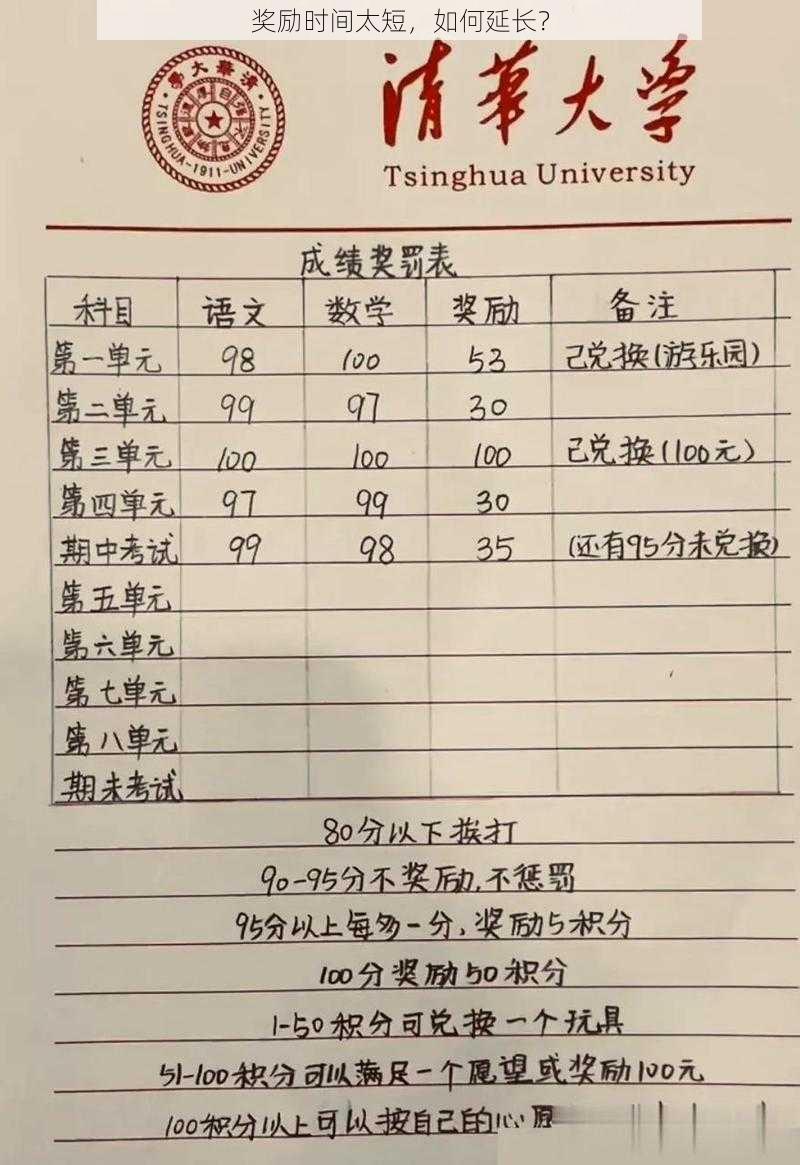 奖励时间太短，如何延长？
清华大学
·TSINGHUA-1911-UNIVERSITY·
清華大学
Tsinghua University
成绩奖罚表
科目 语文 数学 奖励 备注
第一单元 98 100 53 己兑换(游乐园)
第二单元 99 97 30
第三单元 100 100 100 己兑换(100元)
第四单元 97 99 30
期中考试 99 98 35 (还有95分未兑换)
第五单元
第六单元
第七单元
第八单元
期末考试
80分以下挨打
90-95分不奖励,不惩罚
95分以上每多一分,奖励5积分
100分奖励50积分
1-50积分可兑换一个玩具
51-100积分可以满足一个愿望或奖励100元
100积分以上可以按自己的心愿